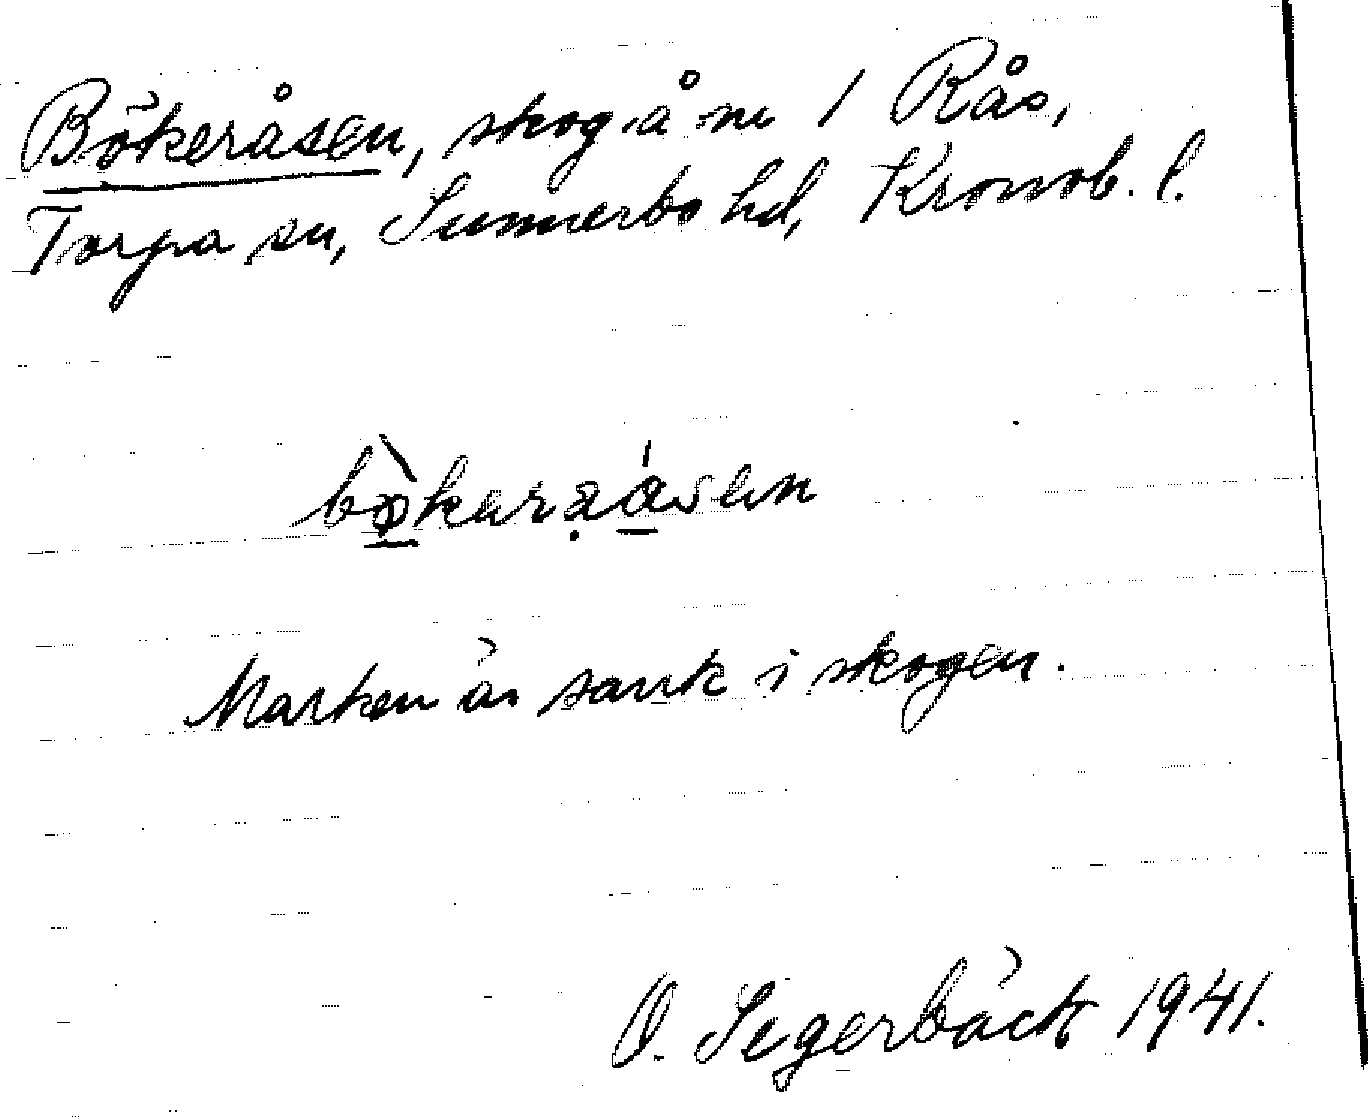 Bökeråsen, skog å nr 1 Rås,
Torpa sn, Sunnerbo hd, Kronob. l.
Marken är sank i skogen.
O. Segerbäck 1941.